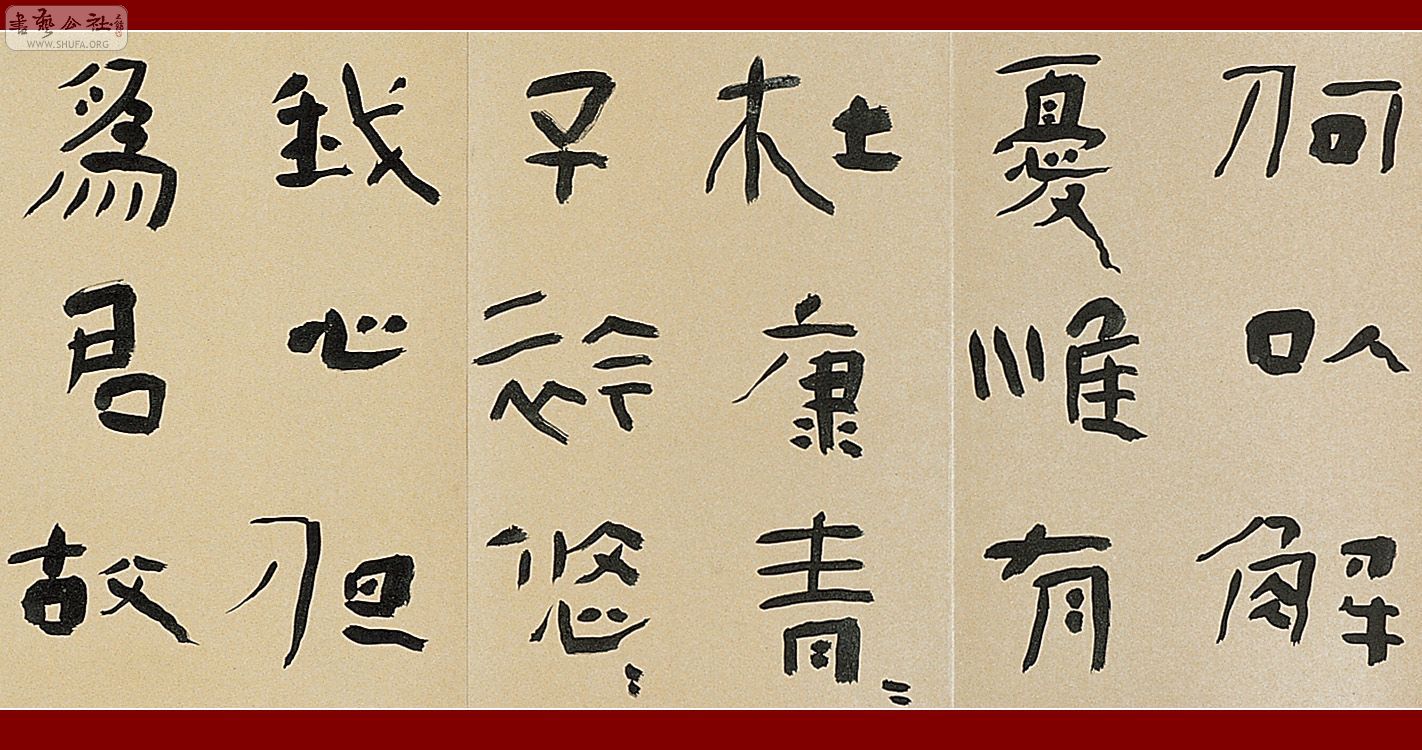 何以解
憂惟有
杜康青〻
子衿悠〻
我心但
為君故
書藝公社
WWW.SHUFA.ORG